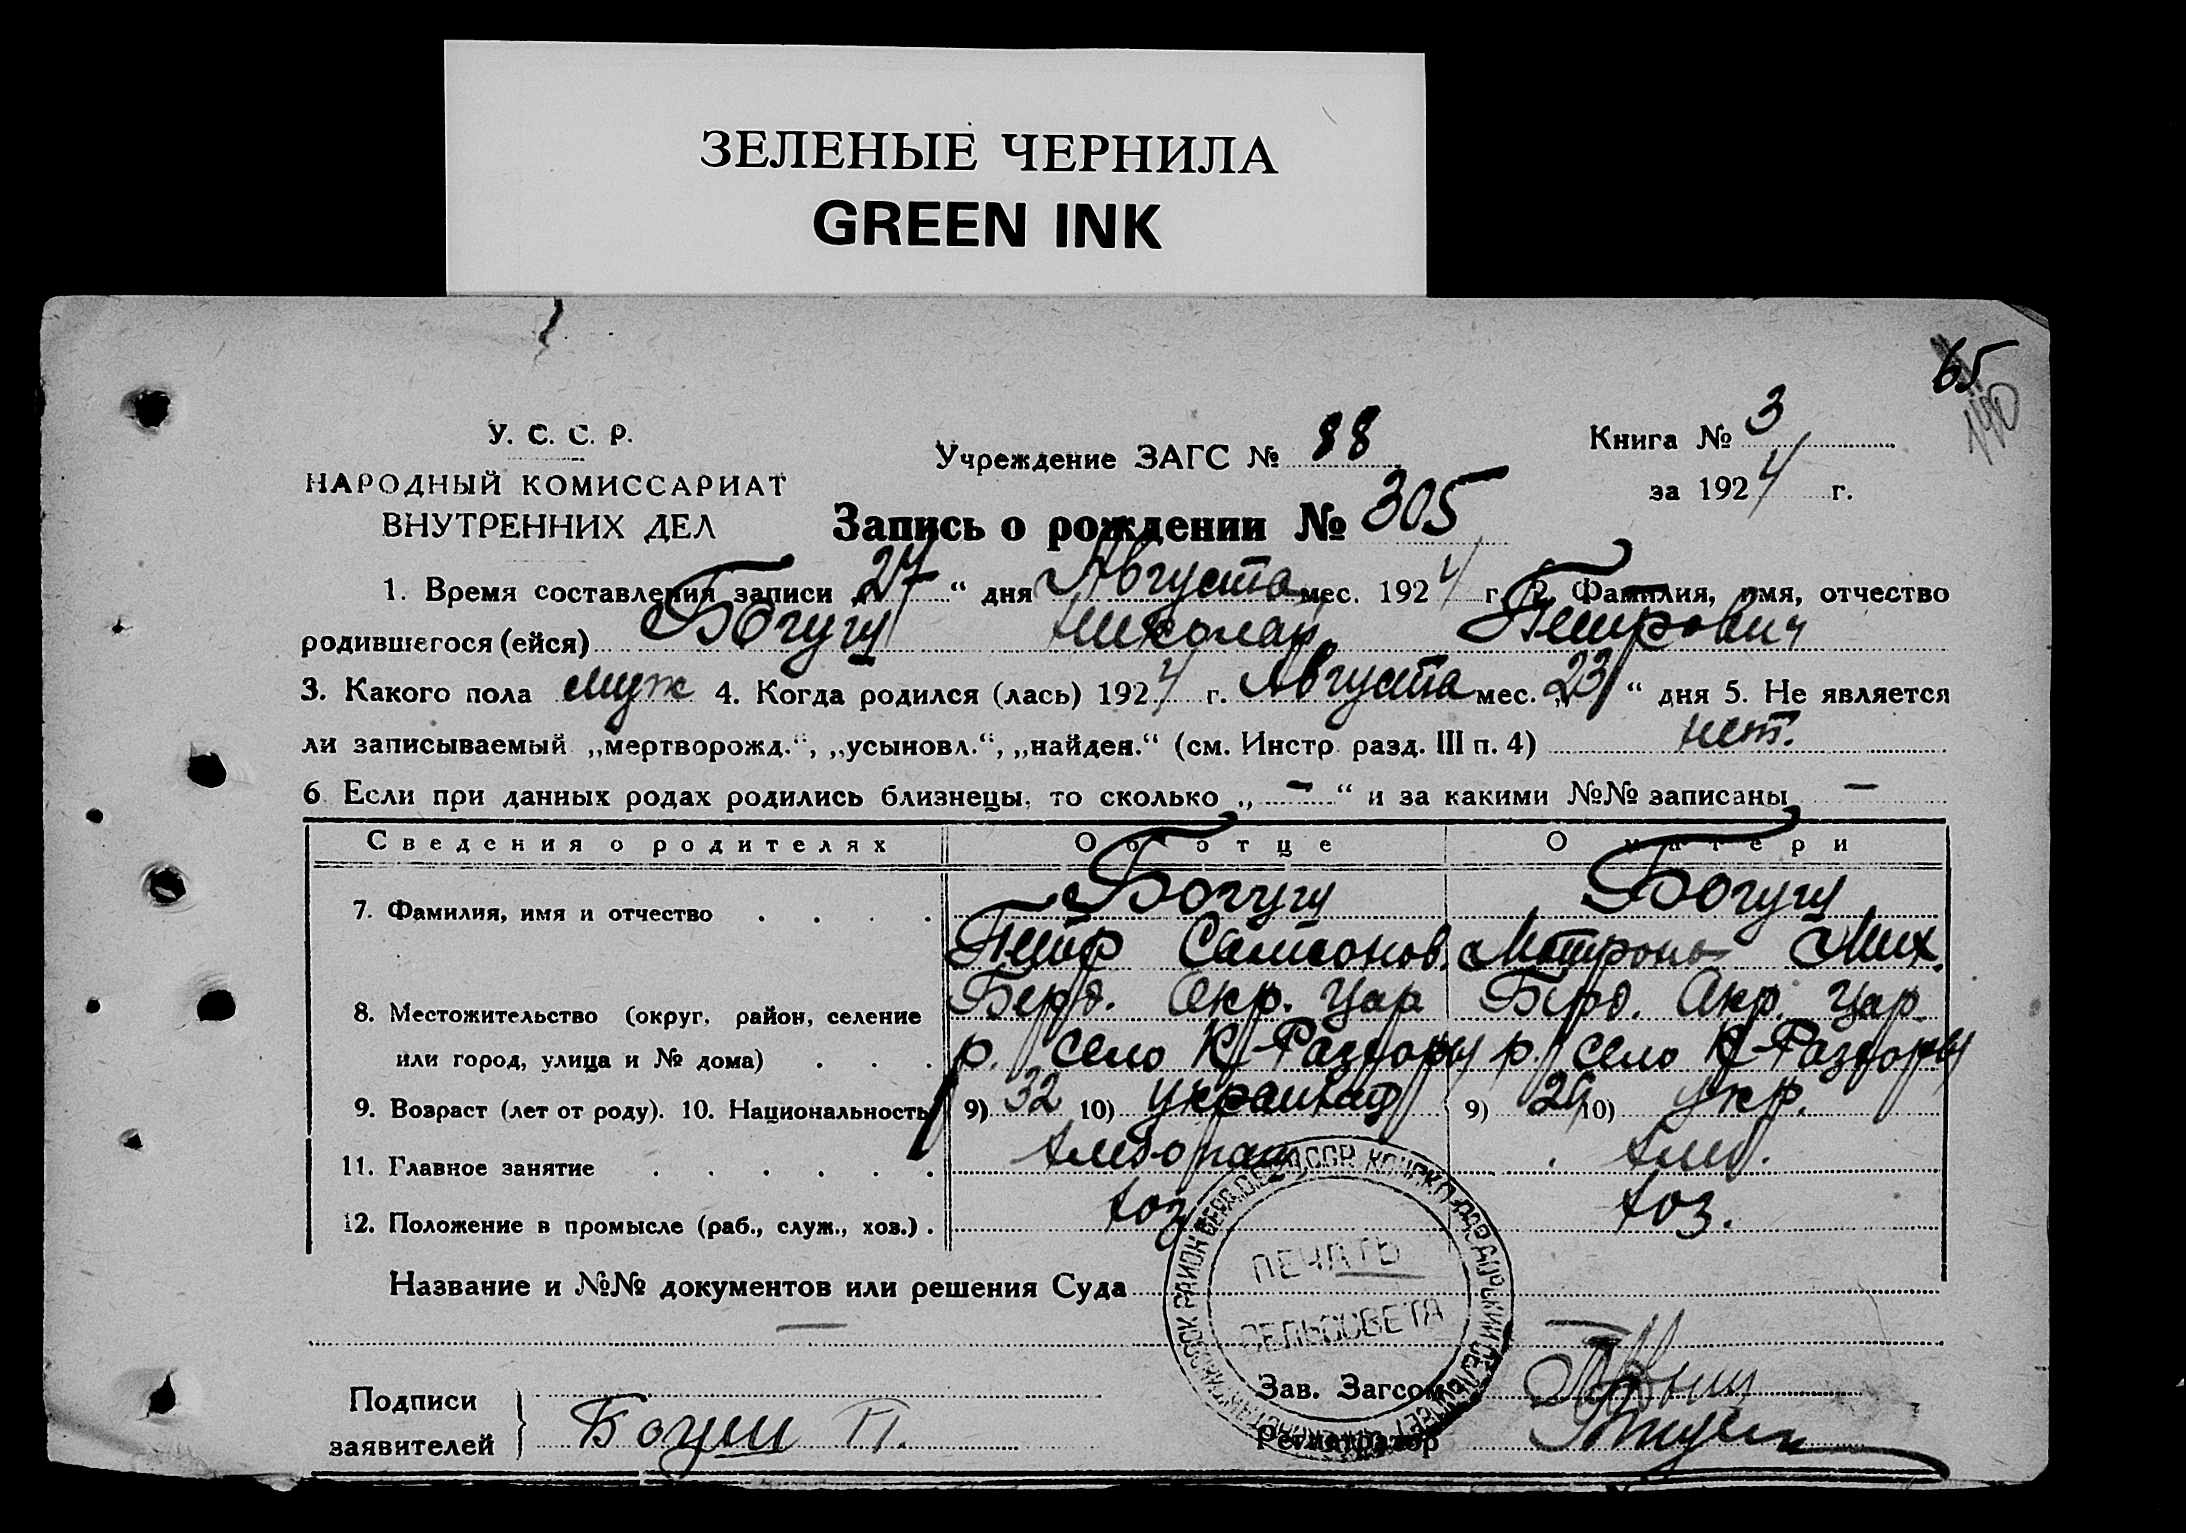 ЗЕЛЕНЫЕ ЧЕРНИЛА
GREEN INK
65
140
У. С. С. Р.
НАРОДНЫЙ КОМИССАРИАТ
ВНУТРЕННИХ ДЕЛ
Учреждение ЗАГС № 88
Книга № 3
за 1924 г.
Запись о рождении № 305
1. Время составления записи „27“ дня Августа мес. 1924 г. 2. Фамилия, имя, отчество
родившегося (ейся) Богуш Николай Петрович
3. Какого пола муж 4. Когда родился (лась) 1924 г. Августа мес. „23“ дня 5. Не является
ли записываемый „мертворожд.“, „усыновл.“, „найден.“ (см. Инстр. разд. III п. 4) нет.
6. Если при данных родах родились близнецы, то сколько „-“ и за какими №№ записаны -
Сведения о родителях Об отце О матери
7. Фамилия, имя и отчество . . . . Богуш Богуш
Петр Самсонов. Мотрона Мих.
8. Местожительство (округ, район, селение Берд. Окр. Цар Берд. Окр. Цар.
или город, улица и № дома) . . . р. село К-Раздоры р. село К-Раздоры
9. Возраст (лет от роду). 10. Национальность 9) 32 10) украинец 9) 29 10) укр.
11. Главное занятие . . . . . . хлебопаш хлеб.
12. Положение в промысле (раб., служ., хоз.) . хоз хоз.
Название и №№ документов или решения Суда
ПЕЧАТЬ
СЕЛЬСОВЕТА
Подписи
заявителей Богуш П.
Зав. Загсом
Регистратор